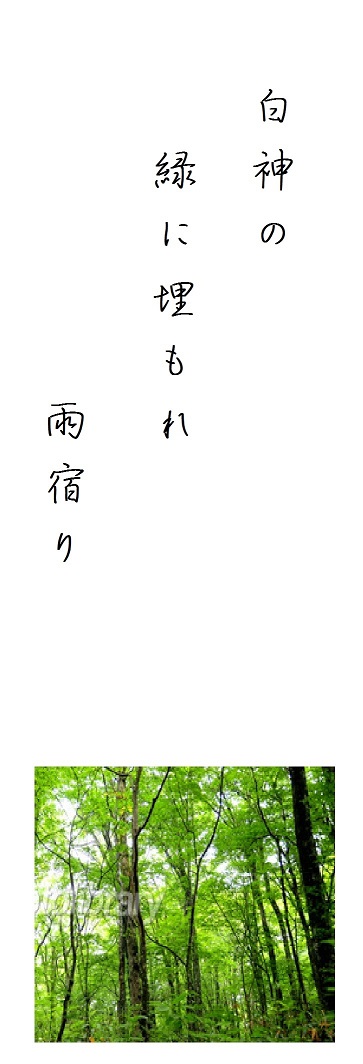 白神の
緑に埋もれ
雨宿り